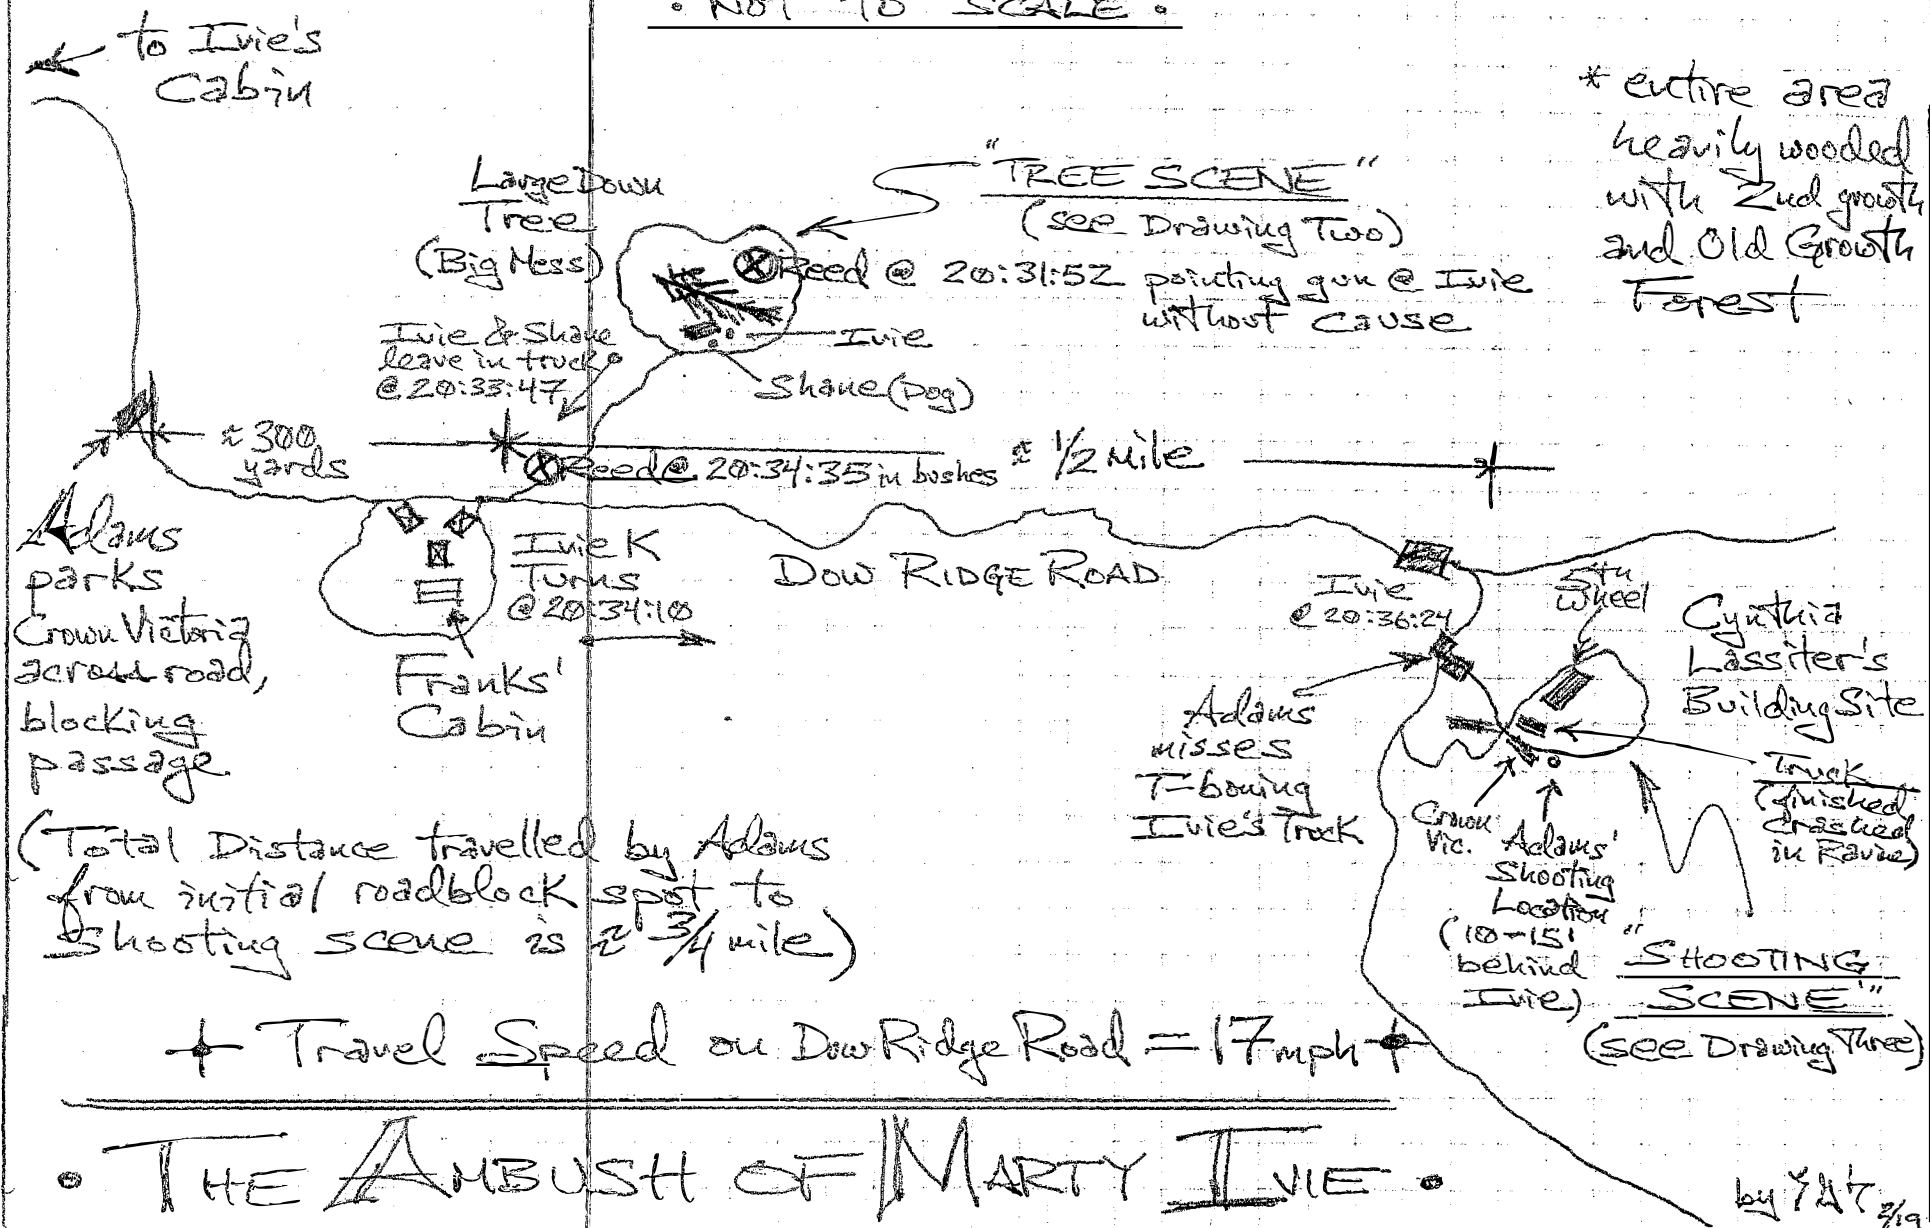 • NOT TO SCALE •
to Ivie's
Cabin
* entire area
heavily wooded
with 2nd growth
and Old Growth
Forest
Large Down
Tree
(Big Mess)
"TREE SCENE"
(see Drawing Two)
Reed @ 20:31:52 pointing gun @ Ivie
without cause
Ivie
Shane (Dog)
Ivie & Shane
leave in truck
@ 20:33:47
≈ 300
yards
Reed @ 20:34:35 in bushes
≈ 1/2 mile
Adams
parks
Crown Victoria
across road,
blocking
passage.
Ivie K
Turns
@ 20:34:10
Franks'
Cabin
DOW RIDGE ROAD
Ivie
@ 20:36:24
5th
Wheel
Cynthia
Lassiter's
Building Site
Adams
misses
T-boning
Ivie's Truck
Crown
Vic.
Adams'
Shooting
Location
(10-15'
behind
Ivie)
Truck
(finished
crashed
in Ravine)
"SHOOTING
SCENE"
(see Drawing Three)
(Total Distance travelled by Adams
from initial roadblock spot to
Shooting scene is ≈ 3/4 mile)
Travel Speed on Dow Ridge Road = 17mph
• THE AMBUSH OF MARTY IVIE •
by
2/19